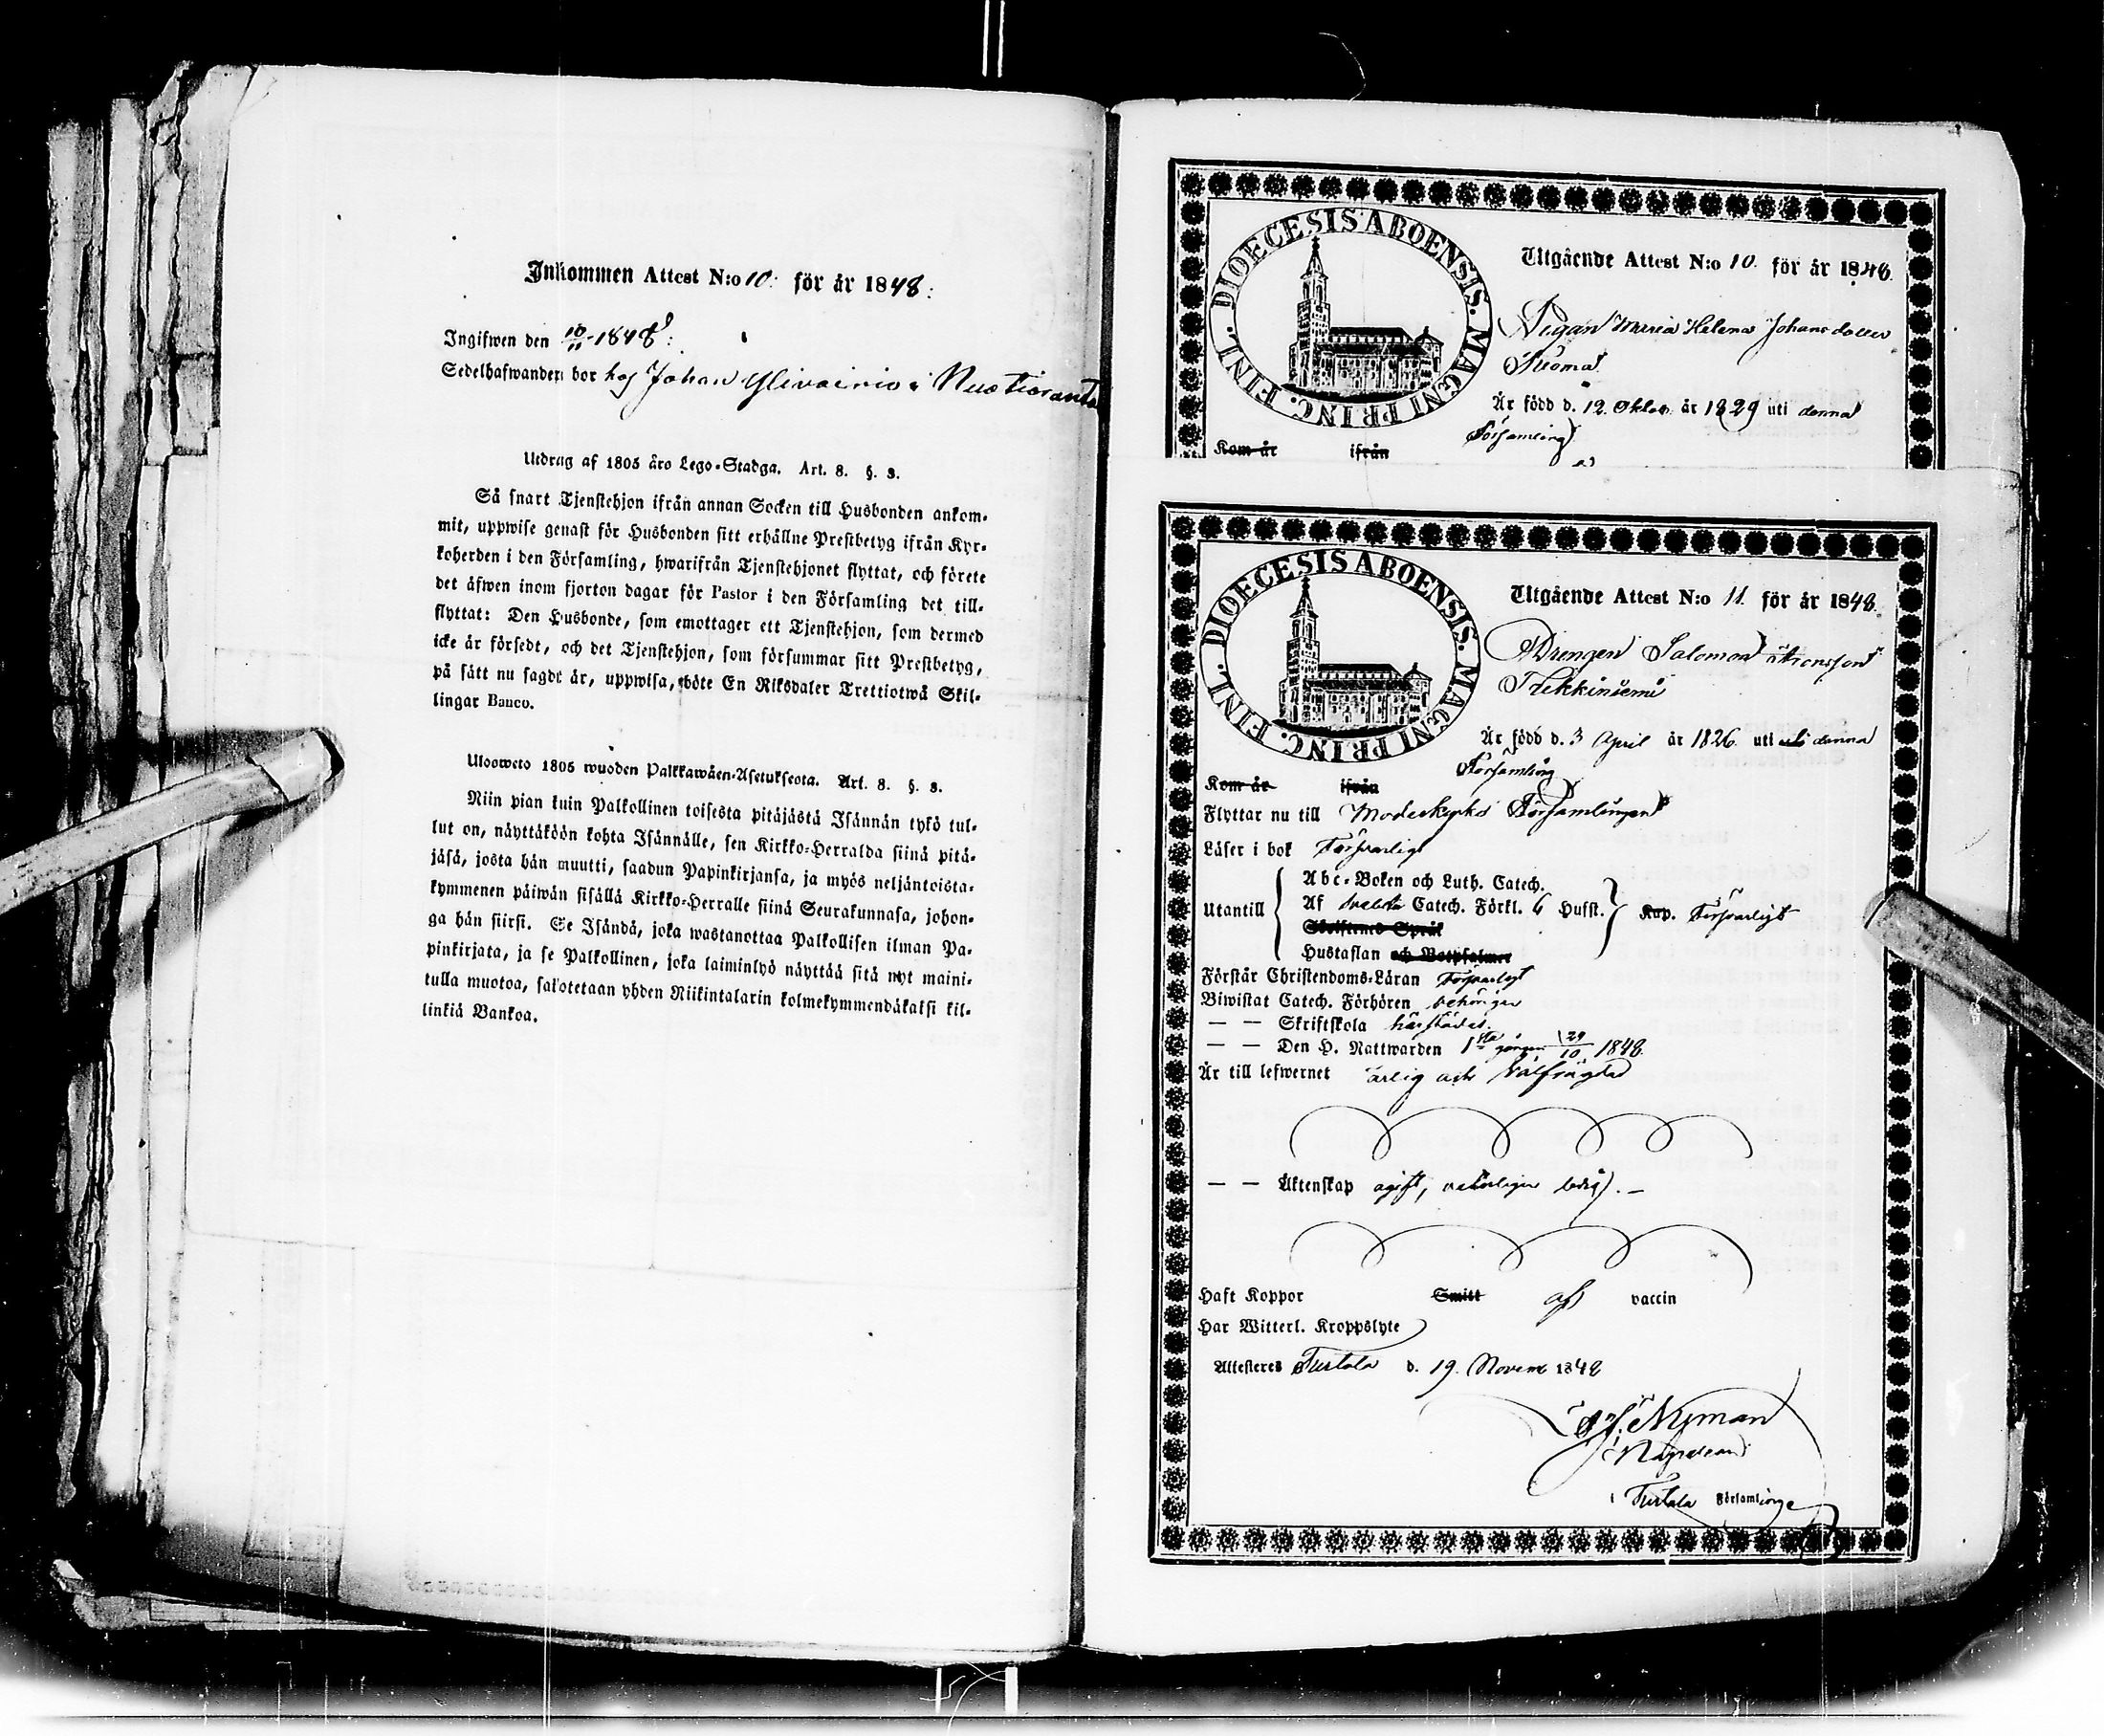 Inkommen Attest N:o 10: för år 1848:
Ingifwen den 10/11 1848:
Sedelhafwanden bor hos Johan Ylivainio i Nuotioranta
Utdrag af 1805 åro Lego-Stadga. Art. 8. §. 3.
Så snart Tjenstehjon ifrån annan Socken till Husbonden ankom-
mit, uppwise genast för Husbonden sitt erhållne Prestbetyg ifrån Kyr-
koherden i den Församling, hwarifrån Tjenstehjonet flyttat, och förete
det äfwen inom fjorton dagar för Pastor i den Församling det till-
flyttat: Den Husbonde, som emottager ett Tjenstehjon, som dermed
icke är försedt, och det Tjenstehjon, som försummar sitt Prestbetyg,
på sätt nu sagdt är, uppwisa, böte En Riksdaler Trettiotwå Skil-
lingar Banco.
Uloosweto 1805 wuoden Palkkawäen-Asetukseota. Art. 8. §. 3.
Niin pian kuin Palkollinen toisesta pitäjästä Isännän tykö tul-
lut on, näyttäköön kohta Isännälle, sen Kirkko-Herralda siinä pitä-
jäsä, josta hän muutti, saadun Papinkirjansa, ja myös neljäntoista-
kymmenen päiwän sisällä Kirkko-Herralle siinä Seurakunnasa, johon-
ga hän siirsi. Se Isändä, joka wastanottaa Palkollisen ilman Pa-
pinkirjata, ja se Palkollinen, joka laiminlyö näyttää sitä nyt maini-
tulla muotoa, sakotetaan yhden Riikintalarin kolmekymmendäkaksi kil-
linkiä Bankoa.
DIOECESIS ABOENSIS. MAGNI PRINC. FINL.
Utgående Attest N:o 10. för år 1848.
Pigan Maria Helena Johansdotter
Är född d. 12. Oktob. år 1829 uti denna
Församling
Kom år ifrån
DIOECESIS ABOENSIS. MAGNI PRINC. FINL.
Utgående Attest N:o 11. för år 1848.
Drengen Salomon
Är född d. 3 April år 1826. uti denna
Församling
Kom år ifrån
Flyttar nu till Församlingen
Läser i bok Försvarligt
Utantill Abc-Boken och Luth. Catech.
Af Svebilii Catech. Förkl. 6 Hufst. Kap. Försvarligt
Skriftenes Språk
Hustaflan och Botpsalmer
Förstår Christendoms-Läran Försvarligt
Biwistat Catech. Förhören behörigen
— — Skriftskola härstädes.
— — Den H. Nattwarden 1sta gången 29/10 1848
Är till lefwernet ärlig och välfrägdad
— — Äktenskap ogift, veterligen ledig. —
Haft Koppor Smitt af vaccin
Har Witterl. Kroppslyte
Attesteres Turtola d. 19. Novem 1848
Nyman
i Turtola Församling